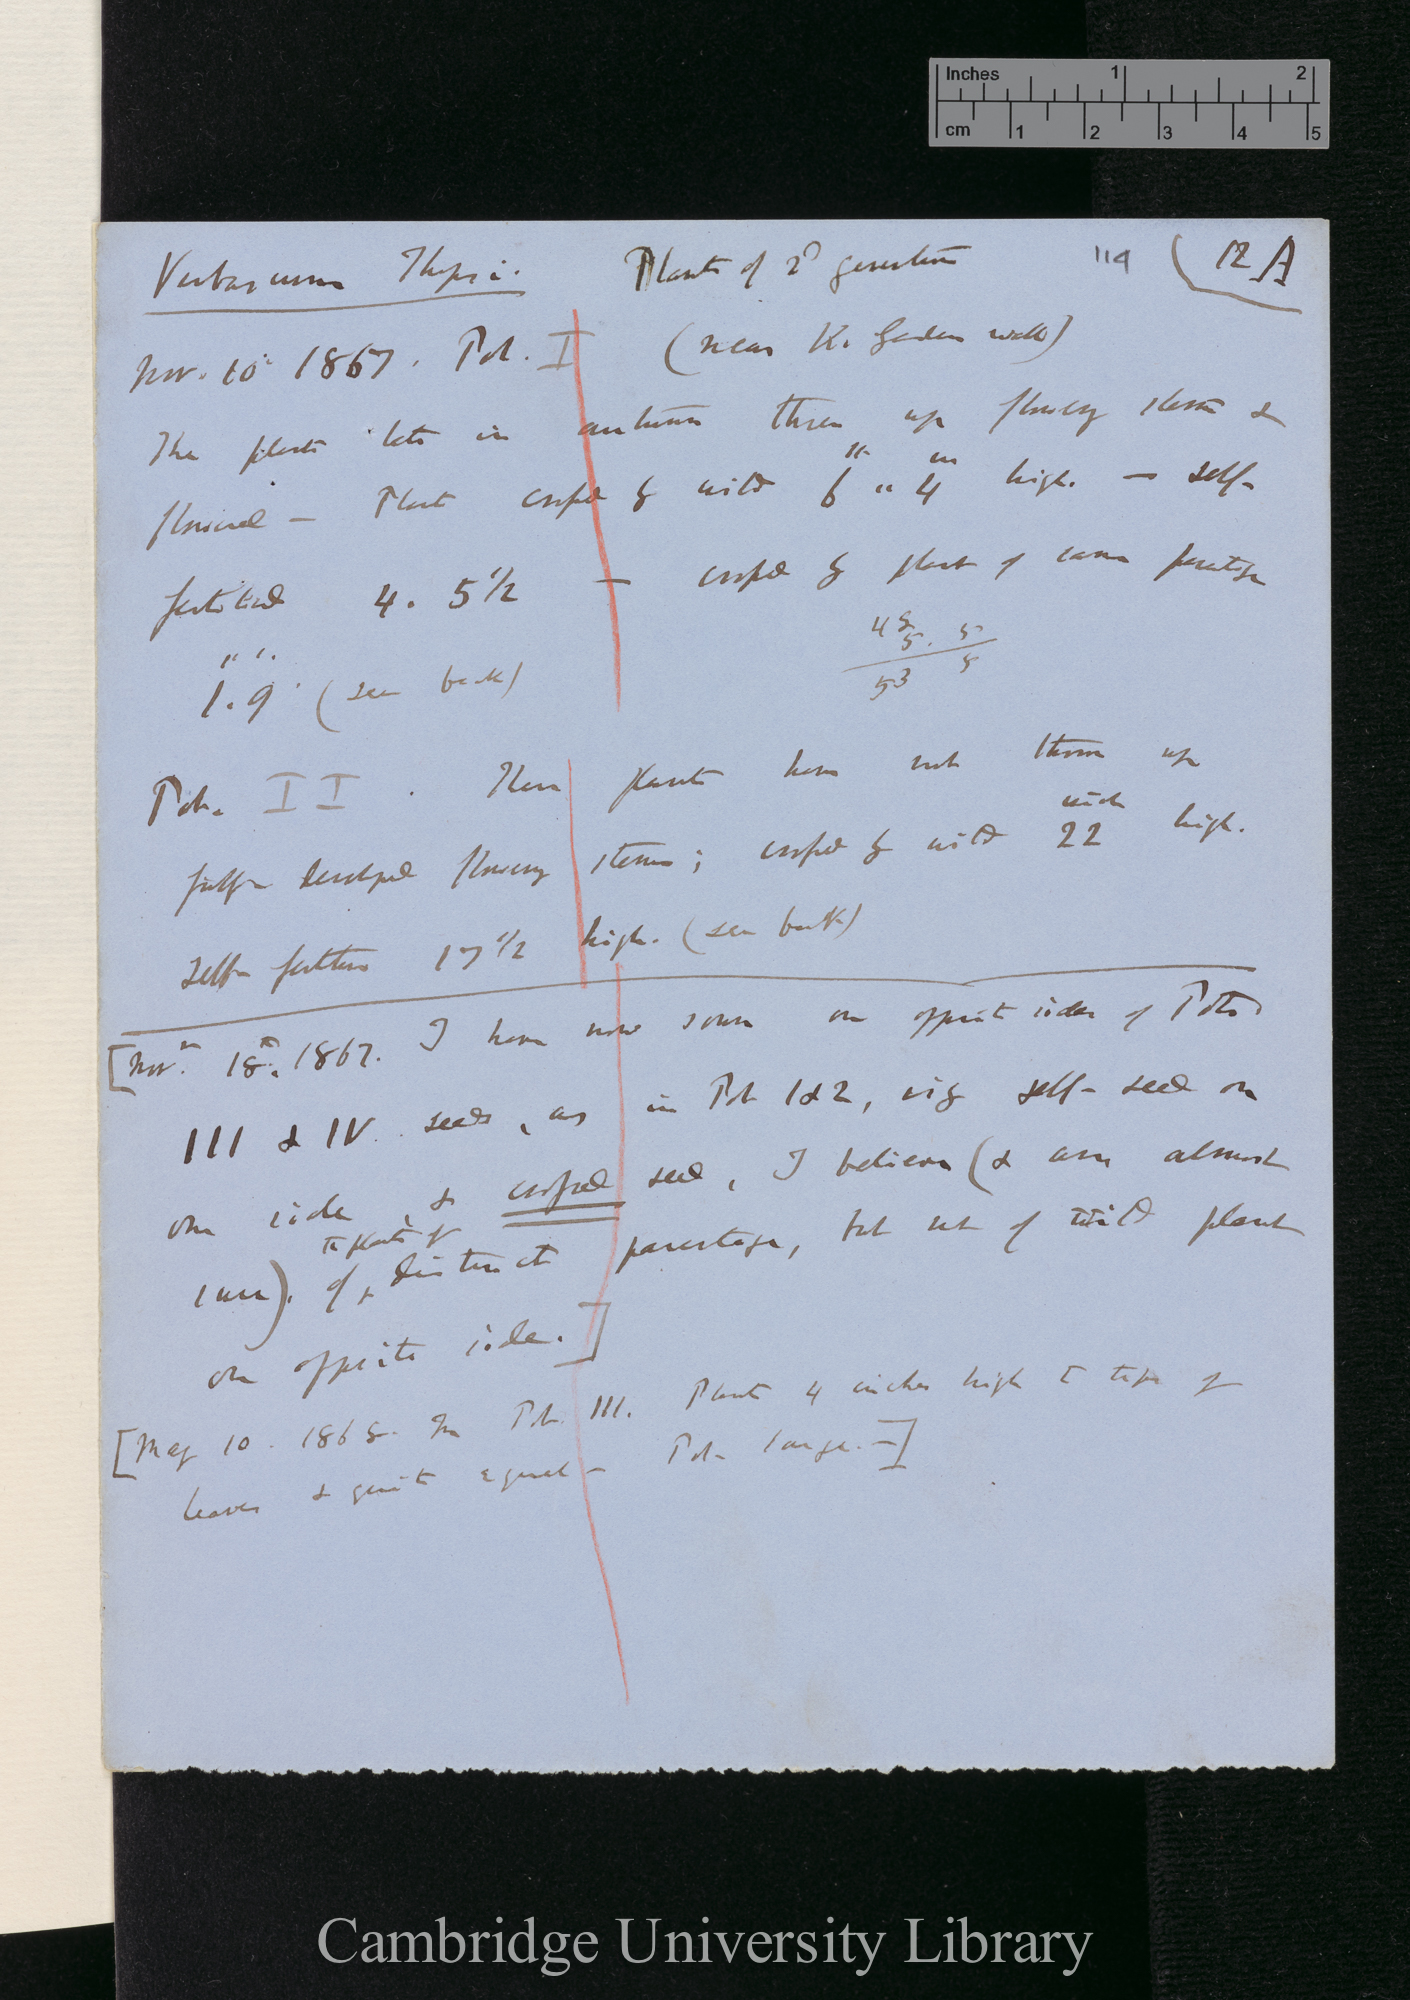 Inches 1 2
cm 1 2 3 4 5
Verbascum Thapsi. Plants of 2d generation 119 (12 A
Nov. 10' 1867. Pot. I (near K. Garden walk)
The plants late in autumn threw up flowery stems &
flowered — Plant crossed by wild 6 " 4 high. — self-
fertilised 4. 5 1/2 — crossed by plant of same parentage
48 5. 5
1. 9 (see back)
53 5
Pot. II. These plants have not thrown up
inch
fully developed flowery stems; crossed by wild 22 high.
self- fertilised 17 1/2 high. (see back)
[Nov. 18th. 1867. I have now sown on opposite sides of Pots
III & IV seeds, as in Pot 1 & 2, viz self- seed on
one side, & crossed seed, I believe (& am almost
the plants of
sure). of distinct parentage, but not of wild plant
on opposite side.]
[May 10. 1868. In Pot. III. Plants 4 inches high to tips of
leaves & quite equal — Pot large. —]
Cambridge University Library